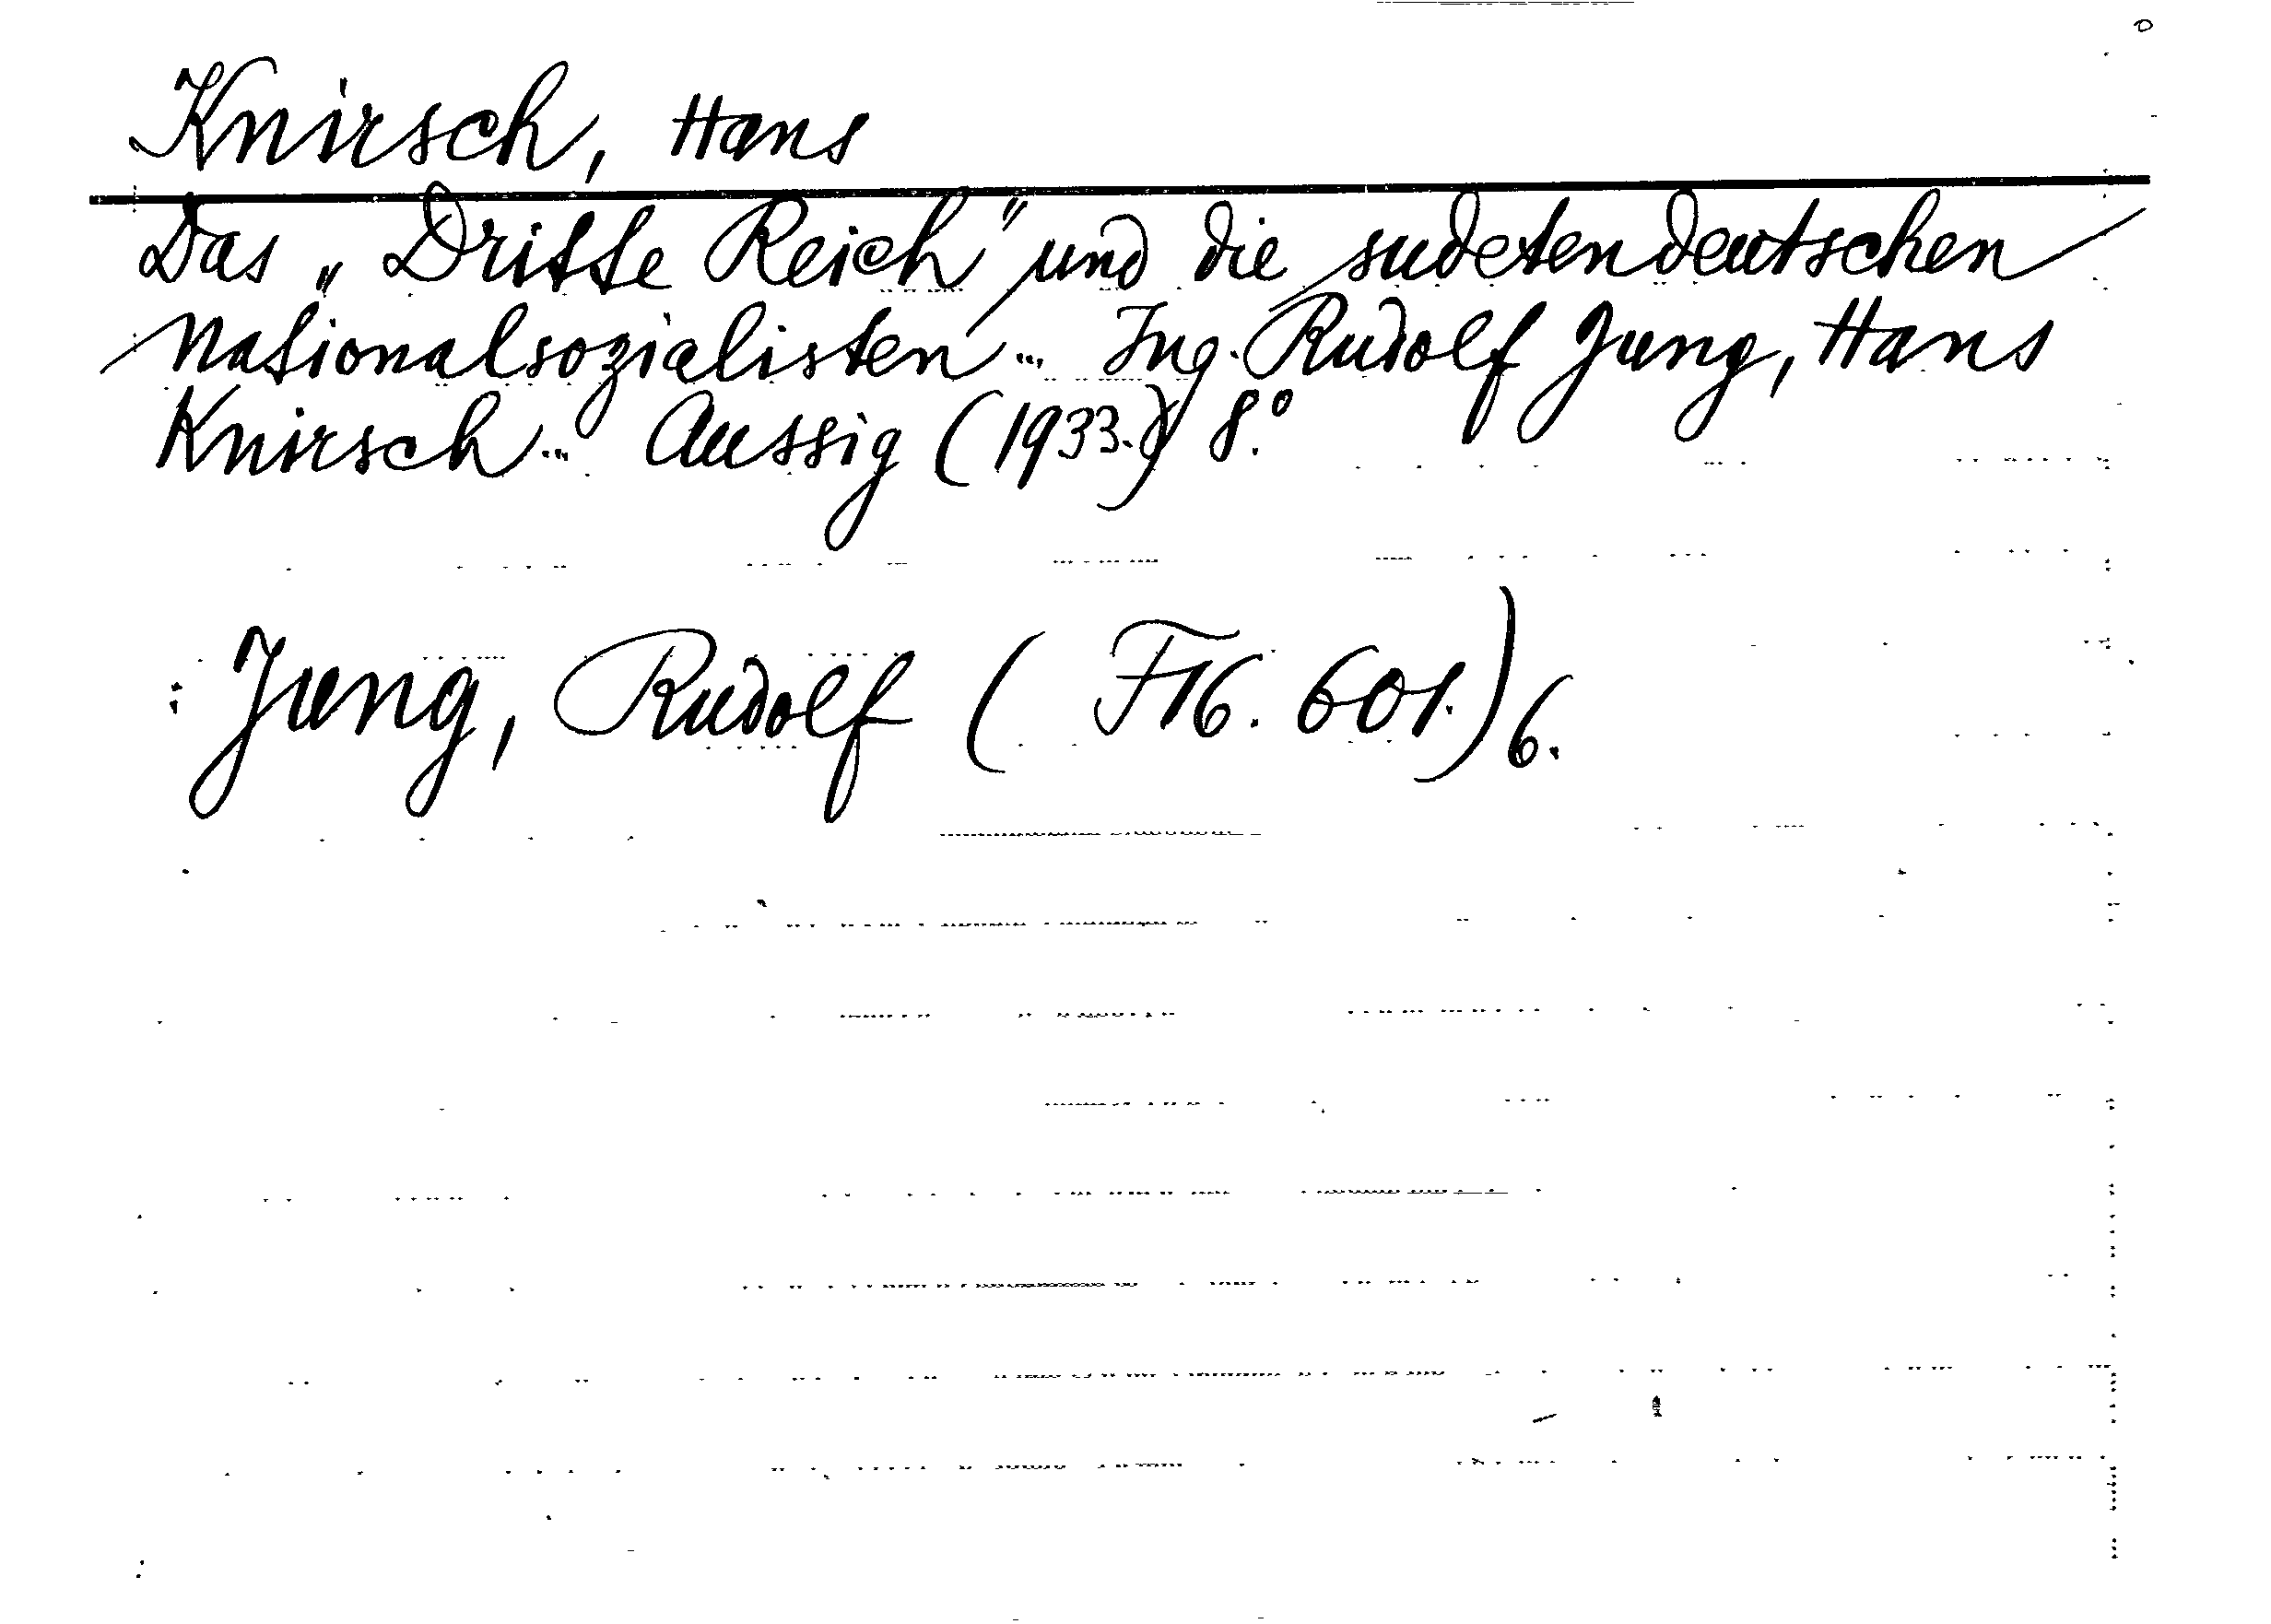 Knirsch, Hans
Das „Dritte Reich" und die sudetendeutschen
Nationalsozialisten... Ing. Rudolf Jung, Hans
Knirsch... Aussig (1933.) 8.°
: Jung, Rudolf ( F 16. 601.) 6.